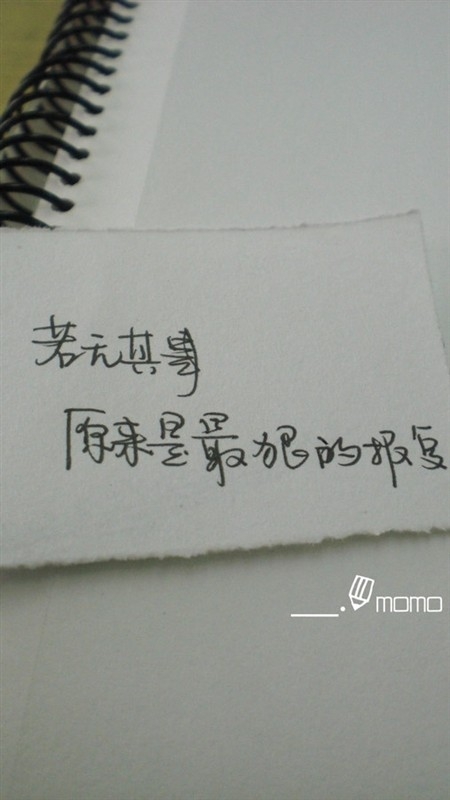 若无其事
原来是最狠的报复
___.momo